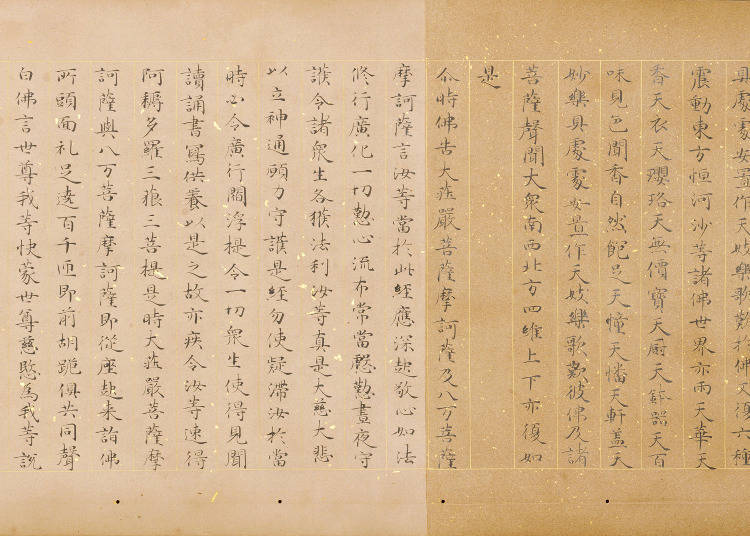 具處處安置作天妓樂歌歎於佛又復六種
震動東方恒河沙等諸佛世界亦雨天華天
香天衣天瓔珞天無價寶天厨天鉢器天百
味見色聞香自然飽足天幢天幡天軒蓋天
妙樂具處處安置作天妓樂歌歎彼佛及諸
菩薩聲聞大衆南西北方四維上下亦復如
是
尒時佛告大莊嚴菩薩摩訶薩及八万菩薩
摩訶薩言汝等當於此經應深起敬心如法
修行廣化一切懃心流布常當慇懃晝夜守
護令諸衆生各獲法利汝等真是大慈大悲
以立神通願力守護是經勿使疑滯汝於當
時必令廣行閻浮提令一切衆生使得見聞
讀誦書寫供養以是之故亦疾令汝等速得
阿耨多羅三藐三菩提是時大莊嚴菩薩摩
訶薩與八万菩薩摩訶薩即從座起来詣佛
所頭面礼足遶百千匝即前胡跪俱共同聲
白佛言世尊我等快蒙世尊慈愍為我等說